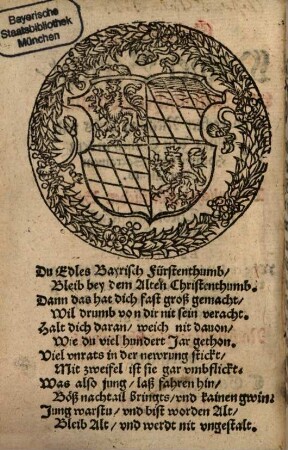 Bayerische
Staatsbibliothek
München
Du Edles Bayrisch Fürstenthumb/
Bleib bey dem Alten Christenthumb.
Dann das hat dich fast groß gemacht/
Wil drumb von dir nit sein veracht.
Halt dich daran/ weich nit dauon/
Wie du viel hundert Jar gethon.
Viel vnrats in der newrung stickt/
Mit zweifel ist sie gar vmbflickt.
Was also jung/ laß fahren hin/
Böß nachtail bringts/ vnd kainen gwin.
Jung warstu/ vnd bist worden Alt/
Bleib Alt/ vnd werdt nit vngestalt.